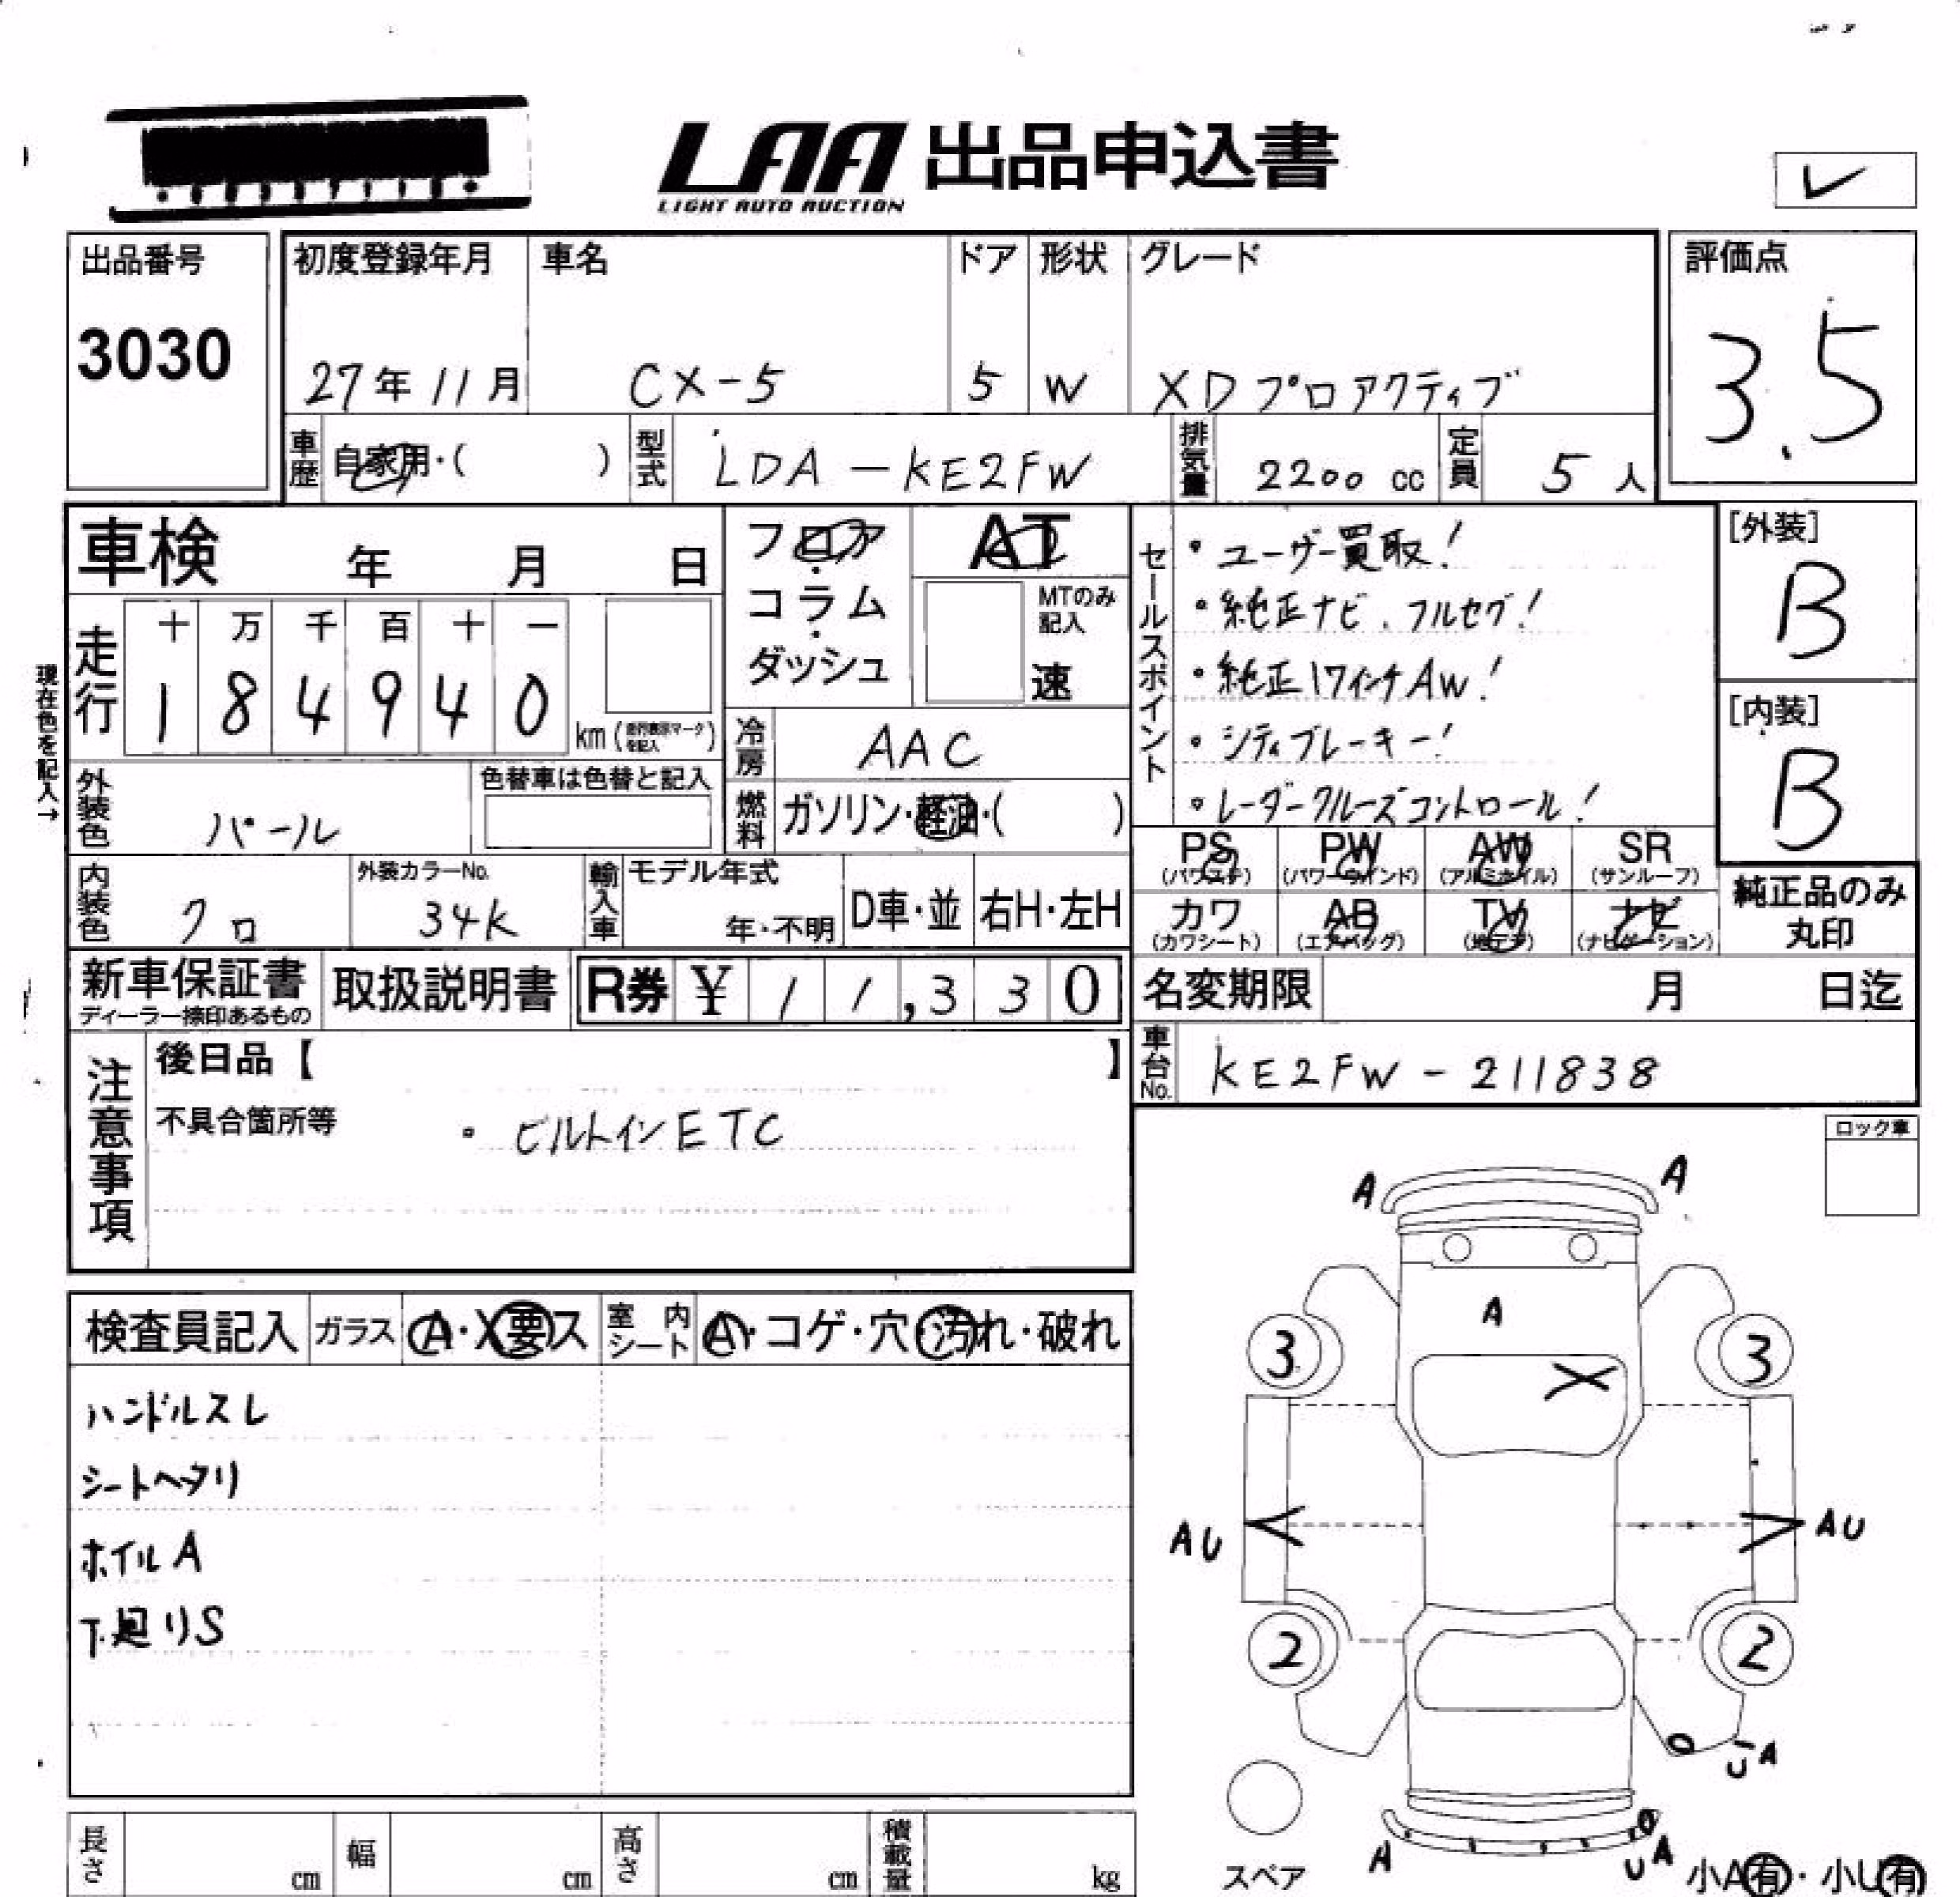 LAA 出品申込書
LIGHT AUTO AUCTION
出品番号
3030
初度登録年月
27年11月
車名
CX-5
ドア
5
形状
W
グレード
XDプロアクティブ
評価点
3.5
車歴 自家用・( )
型式 LDA-KE2FW
排気量 2200 cc
定員 5 人
車検 年 月 日
現在色を記入→
走行
十 万 千 百 十 一
1 8 4 9 4 0
km(走行表示マークを記入)
フロア・コラム・ダッシュ
AT
MTのみ記入
速
冷房 AAC
燃料 ガソリン・軽油・( )
外装色 パール
色替車は色替と記入
内装色 クロ
外装カラーNo.
34K
輸入車
モデル年式
年・不明
D車・並
右H・左H
セールスポイント
・ユーザー買取!
・純正ナビ、フルセグ!
・純正17インチAW!
・シティブレーキー!
・レーダークルーズコントロール!
[外装]
B
[内装]
B
PS (パワステ)
PW (パワーウインド)
AW (アルミホイル)
SR (サンルーフ)
カワ (カワシート)
AB (エアバッグ)
TV (地デジ)
ナビ (ナビゲーション)
純正品のみ丸印
新車保証書
ディーラー捺印あるもの
取扱説明書
R券 ¥11,330
名変期限 月 日迄
車台No. KE2FW-211838
注意事項
後日品【 】
不具合箇所等
・ビルトインETC
ロック車
検査員記入
ガラス A・X要ス
室内シート A・コゲ・穴・汚れ・破れ
ハンドルスレ
シートヘタリ
ホイルA
下廻りS
A A
A
3 3
X
AU AU
2 2
UA
A UA
スペア
小A有・小U有
長さ cm
幅 cm
高さ cm
積載量 kg